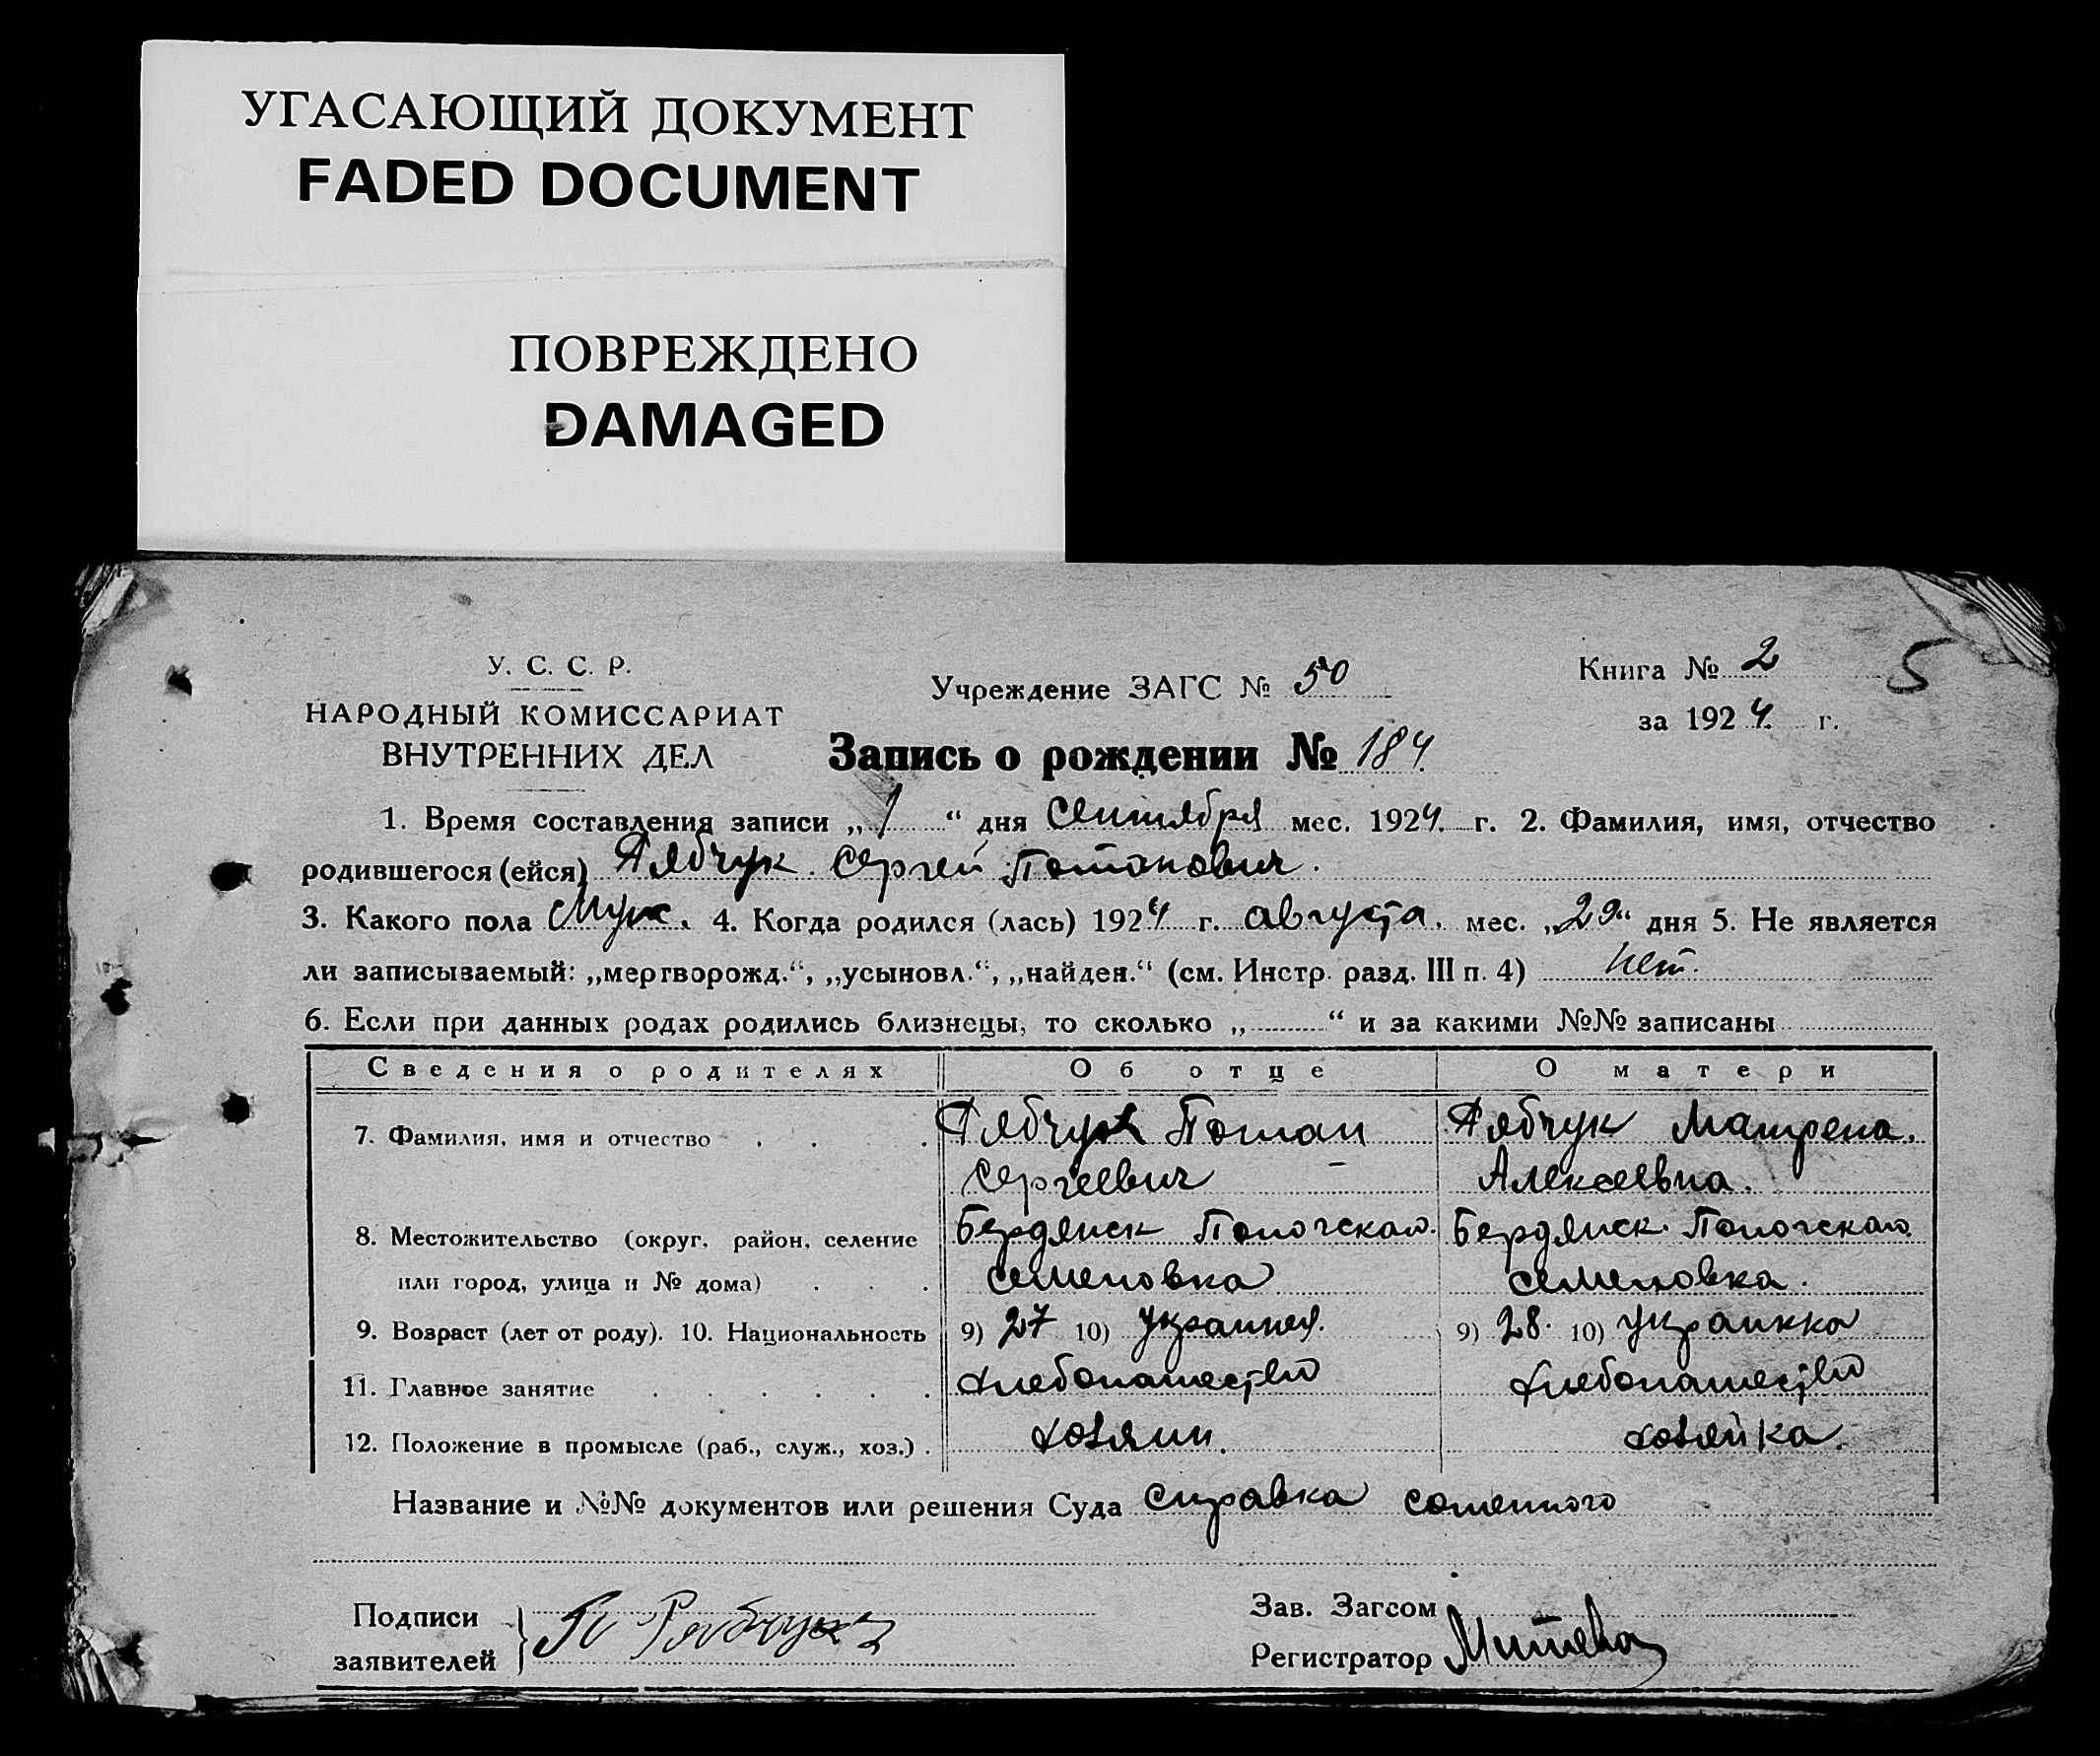 УГАСАЮЩИЙ ДОКУМЕНТ
FADED DOCUMENT
ПОВРЕЖДЕНО
DAMAGED
У. С. С. Р.
НАРОДНЫЙ КОМИССАРИАТ
ВНУТРЕННИХ ДЕЛ
Учреждение ЗАГС № 50
Книга № 2 5
за 1924 г.
Запись о рождении № 184.
1. Время составления записи „1“ дня Сентября мес. 1924. г. 2. Фамилия, имя, отчество
родившегося (ейся) Рябчук. Сергей Потапович.
3. Какого пола Муж. 4. Когда родился (лась) 1924 г. августа. мес. „29“ дня 5. Не является
ли записываемый: „мертворожд.“, „усыновл.“, „найден.“ (см. Инстр. разд. III п. 4) нет.
6. Если при данных родах родились близнецы, то сколько „ “ и за какими №№ записаны
Сведения о родителях Об отце О матери
7. Фамилия, имя и отчество Рябчук Потап Рябчук Матрена.
Сергеевич Алексеевна.
8. Местожительство (округ, район, селение Бердянск Пологскаго. Бердянск. Пологскаго.
или город, улица и № дома) Семеновка Семеновка.
9. Возраст (лет от роду). 10. Национальность 9) 27 10) 9) 28. 10) Украинка
11. Главное занятие хлебопашество хлебопашество
12. Положение в промысле (раб., служ., хоз.) хозяин. хозяйка.
Название и №№ документов или решения Суда Справка
Подписи
заявителей П Рябчук
Зав. Загсом
Регистратор